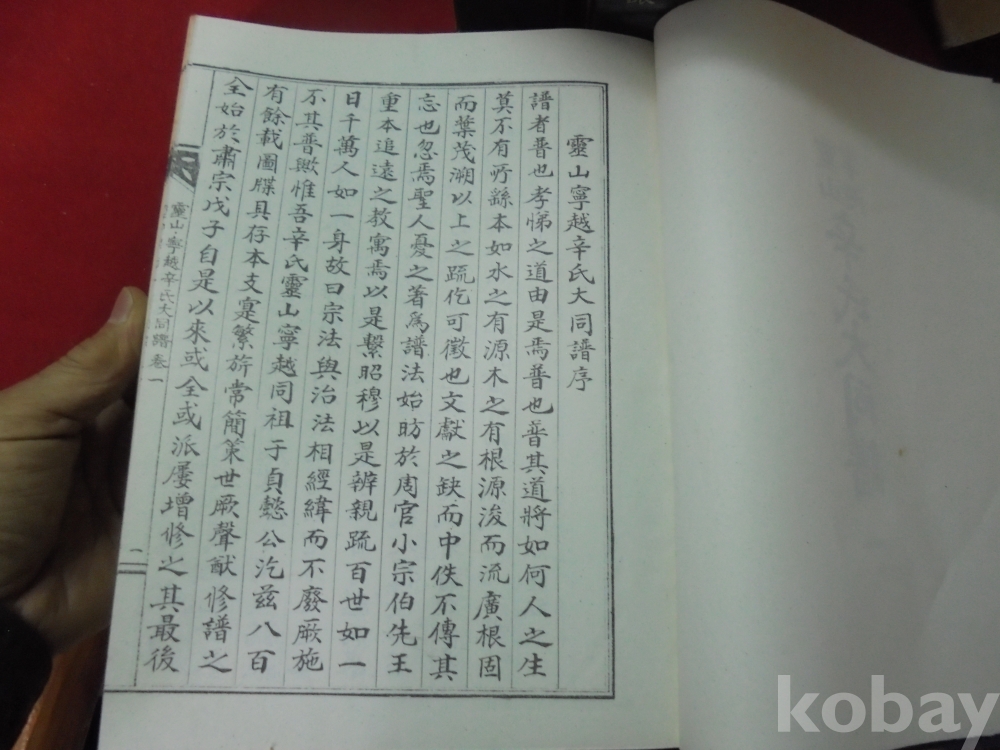 靈山寧越辛氏大同譜序
譜者普也孝悌之道由是焉普也普其道將如何人之生
莫不有所繇本如水之有源木之有根源浚而流廣根固
而葉茂溯以上之疏仡可徵也文獻之缺而中佚不傳其
忘也忽焉聖人憂之著爲譜法始昉於周官小宗伯先王
重本追遠之教寓焉以是繫昭穆以是辨親疏百世如一
日千萬人如一身故曰宗法與治法相經緯而不廢厥施
不其普歟惟吾辛氏靈山寧越同祖于貞懿公汔玆八百
有餘載圖牒具存本支寔繁旂常簡策世厥聲猷修譜之
全始於肅宗戊子自是以來或全或派屢增修之其最後
靈山·寧越辛氏大同譜 卷一
一
kobay